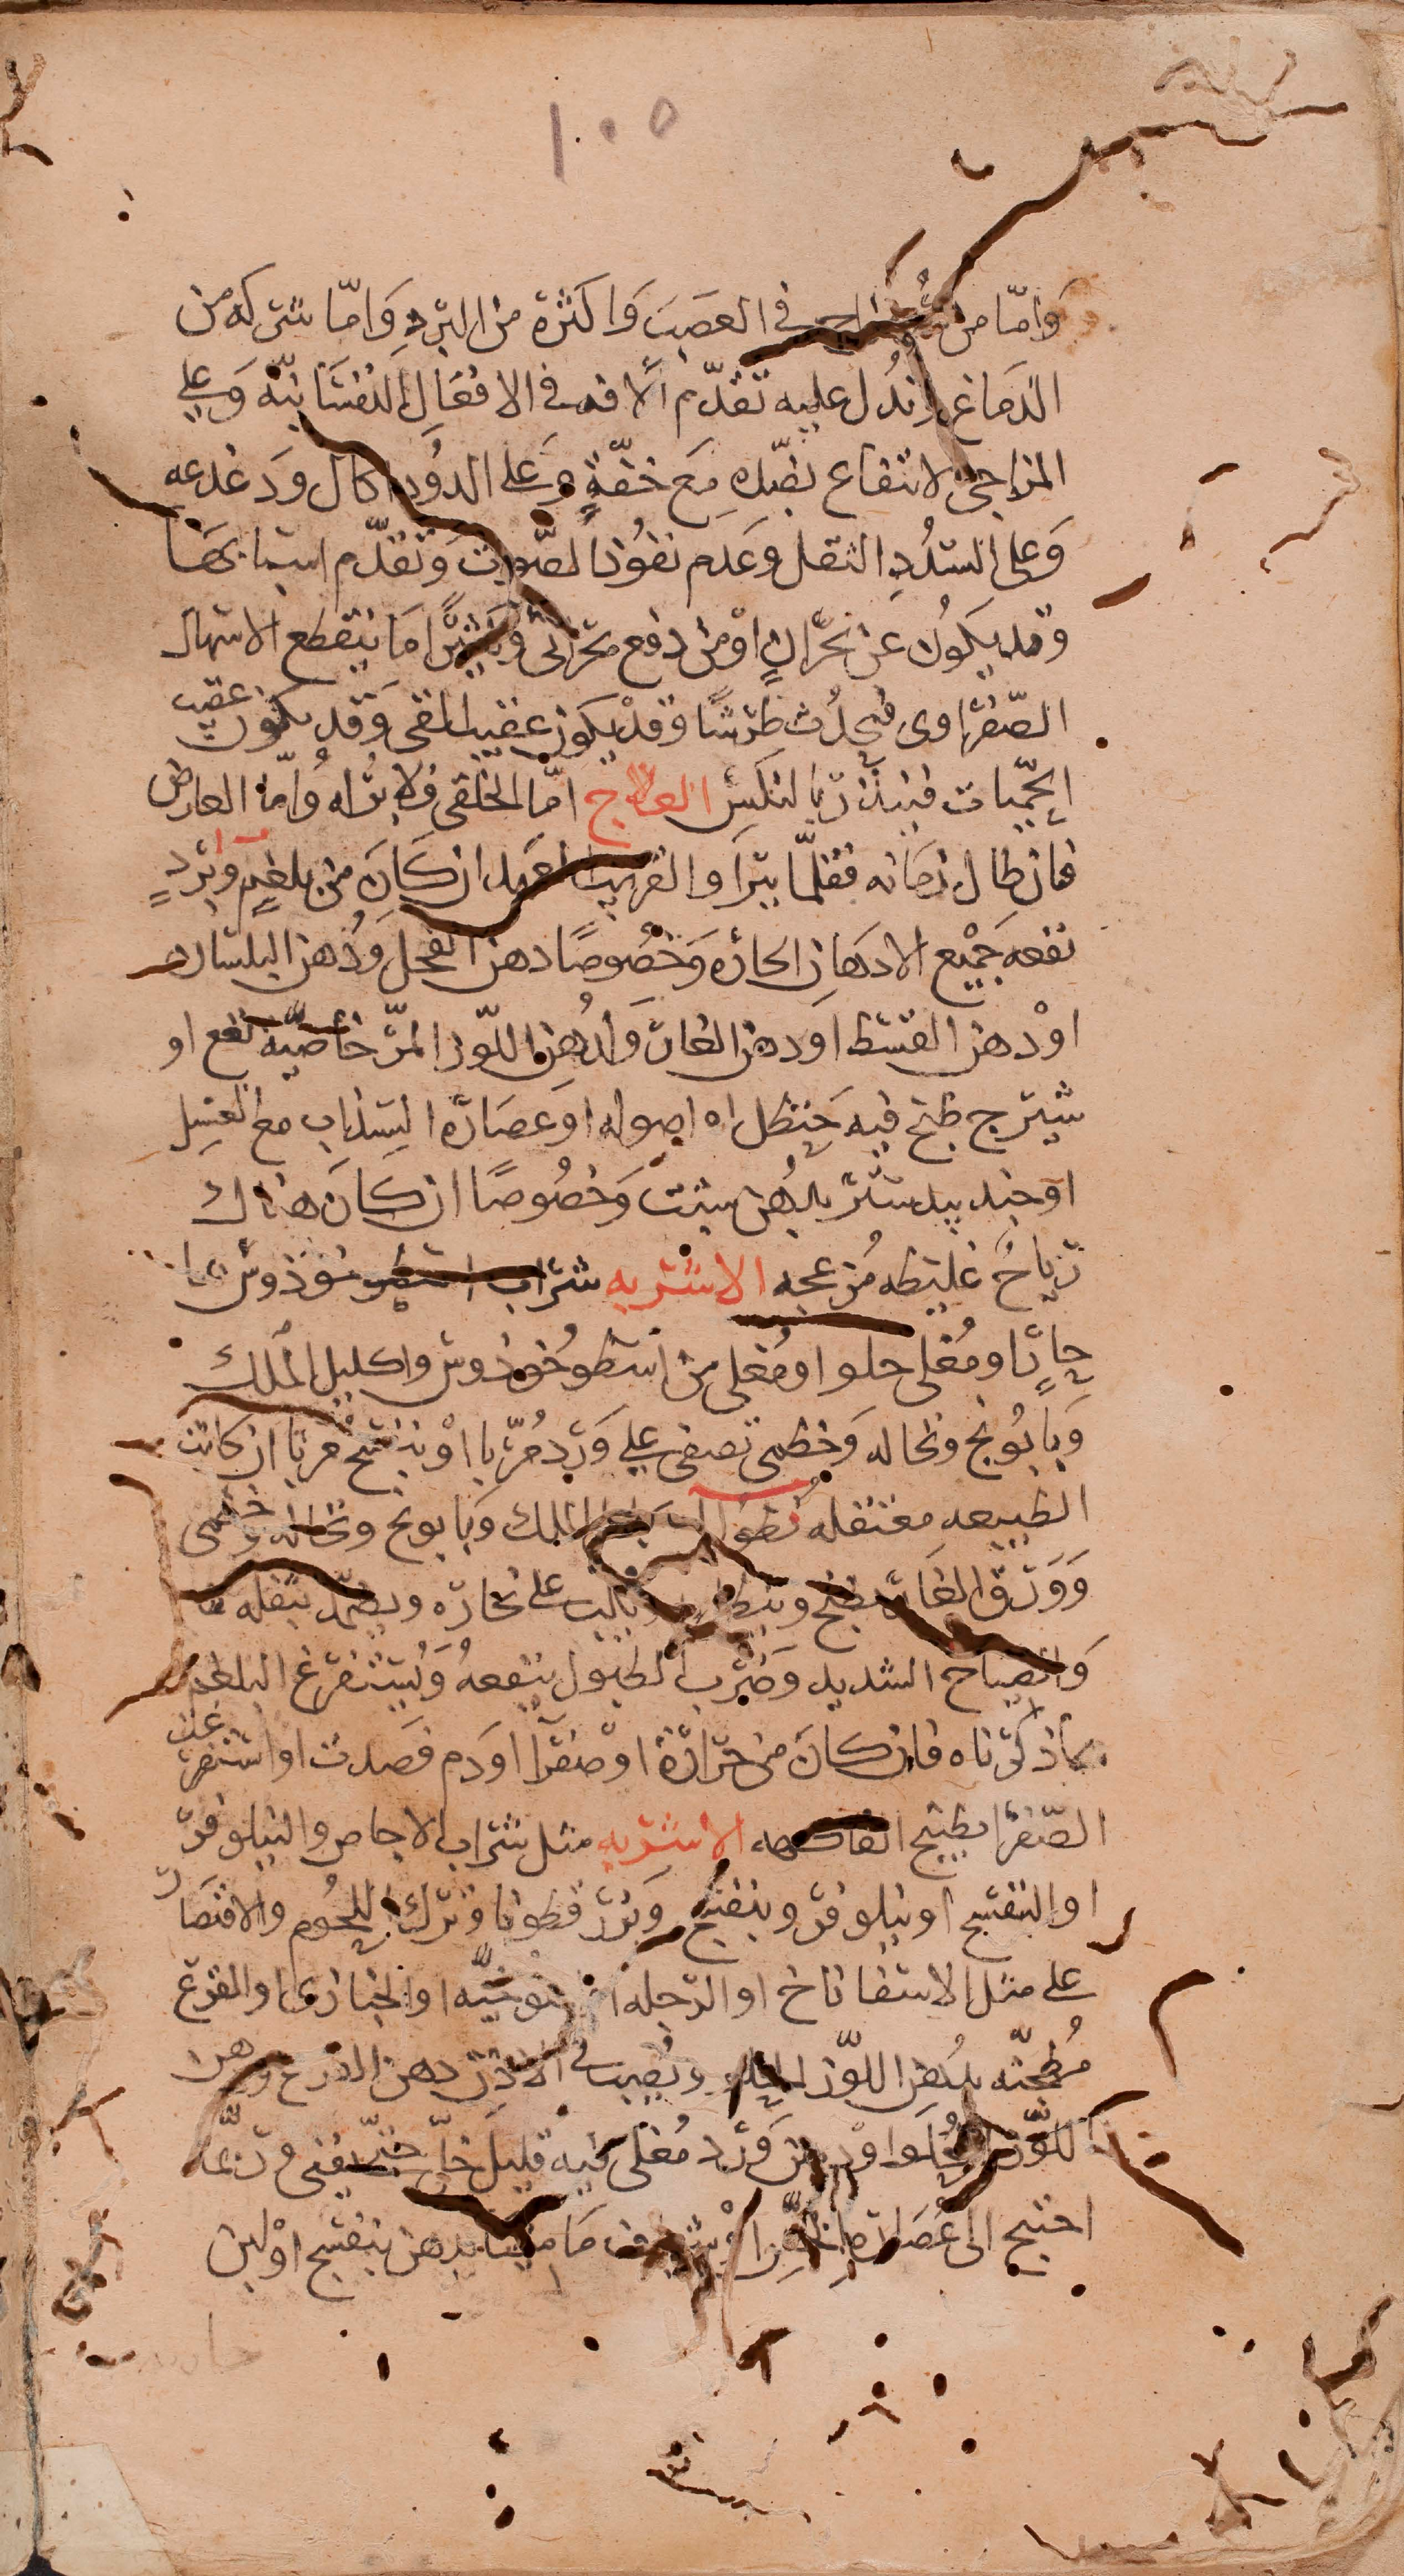 ١٠٥
وَامّا من في العصَبَ وَاكثره من البردِ وَامّا بشركه من
الدمَاغ ويدُل عليه تقدّم الافه في الافعَالِ النفسَانيّه وَعلى
المزاجى الانتفاع بضدّه مَع خفّةٍ وَعلى الدوُد اكال وَدغدغه
وَعلى السدُدِ الثقل وعَدم نفوُذ الصّوت وَتقدّم اسبابهَا
وقد يكوُن عن بحرَانٍ اوْ من دفع بحرانى وَكثيرًا مَا ينقطع الاسهال
الصّفرَاوى فيحدُث طرَشًا وَقدْ يكون عقيب القى وَقد يكون عقيب
الحمّيات فينذر بالنكسْ العلاج امّا الخلقى فلا برُاله وَامّا العارض
فان طال زمَانه فقلّما يبرَا والقريب العهد ان كَانَ من بلغمٍ وَبردٍ
نفعه جَميْع الادهَان الحارّه وَخصُوصًا دهن الفجل وَدُهن البلسان
اوْ دهن القسط اوَ دهن الغار وَلدُهن اللوّز المرّ خاصّيّه نفع او
شيرج طبخ فيه حَنظل او اصوله اوَ عصَارة السذاب مع العسَل
اوجند بيدستر بدُهن شبت وَخصُوصًا ان كانَ هناك
ريَاحٌ غليظه مُزعجه الاشربه شرَاب اسطوخوذوس
حارًا ومُغلى حلو او مُغلى من اسطوُخوذُوس واكليل الملك
وَبابوُنج ونخاله وَخطمى تصفى على وَرد مُربّا اوْ بنفسج مربا ان كانت
الطبيعه معتقله نطوُل اكليل الملك وَبابونج ونخاله وَخطمى
وَوَرَق الغار يطبخ وينطل ويكب على بخاره ويضمّد بثفله
وَالصيَاح الشديد وَضرب الطبول ينفعهُ وَيُستفرَغ البلغم
بماذكرناه فان كانَ من حرَارَة اوْ صفرَا اوَ دم فصَدت او استفرغت
الصّفرَا بطبيخ الفاكهه الاشربه مثل شرَاب الاجاص والنيلوفر
او البنفسج او نيلوفر وبنفسج وَبزر قطونا وَترك اللحُوم والاقتصَار
على مثل الاسفاناخ او الرجله او الملوُخيّه او الخبازى او القرع
مُطجّنه بدُهن اللوّز الحلو ويصب في الاذن دهن القرع ودهن
اللوّز الحلو اوْ دهن وَرد مُغلى فيه قليل خلّ حتّى يفنى وَربّما
احتيج الى عُصَارة الخسّ اوْ شيَاف مَاميثا بدهن بنفسج اوْ لبن